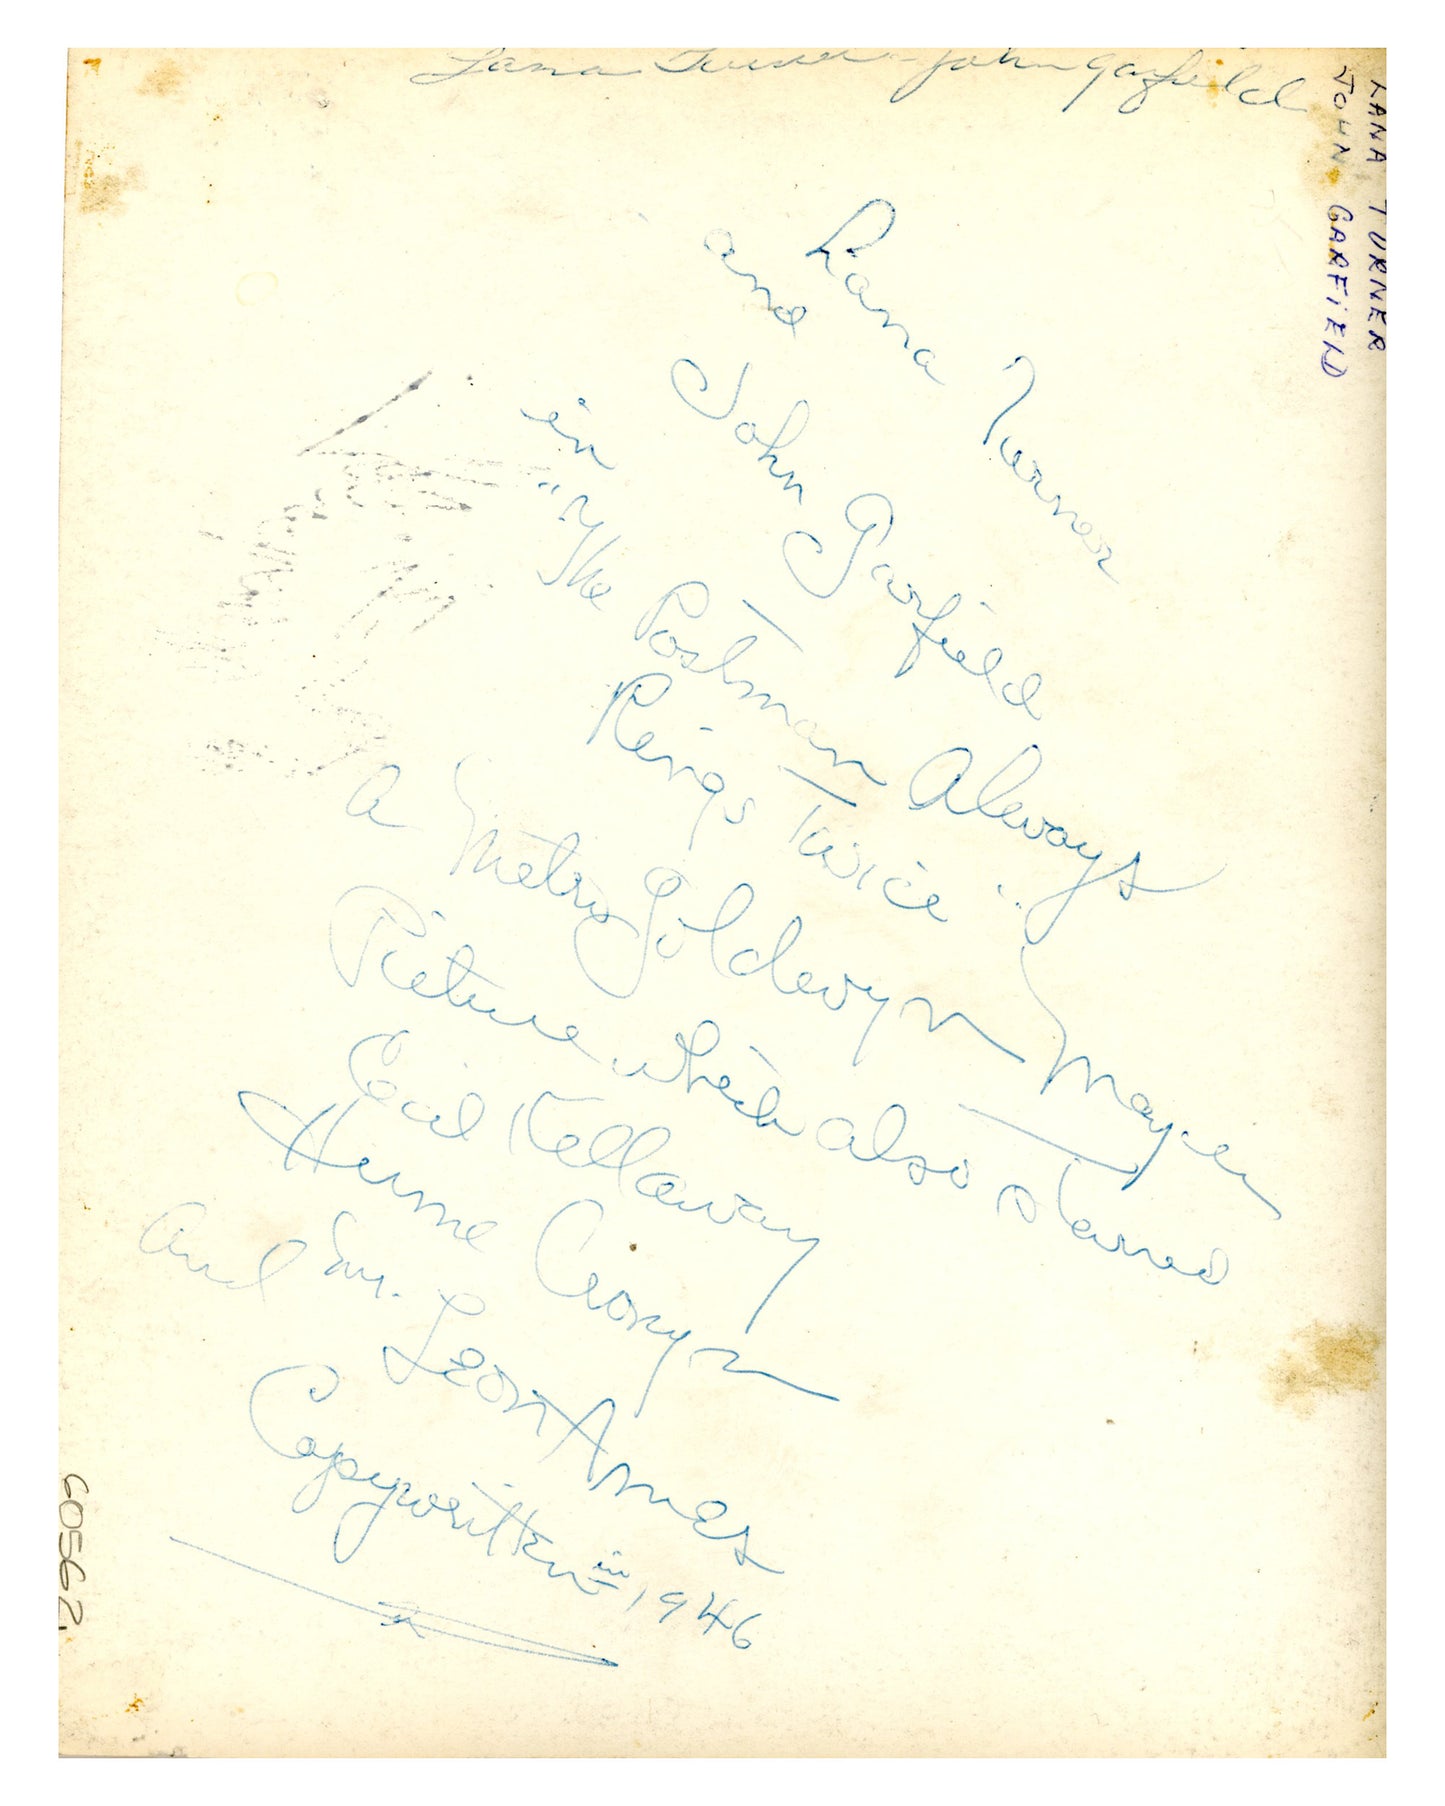 Lana Turner - John Garfield
LANA TURNER
JOHN GARFiELD
Lana Turner
and
John Garfield
in
"The Postman Always
Rings Twice"
A Metro Goldwyn Mayer
Picture which also starred
Cecil Kellaway
Hume Cronyn
And Mr. Leon Ames
Copywritten in 1946